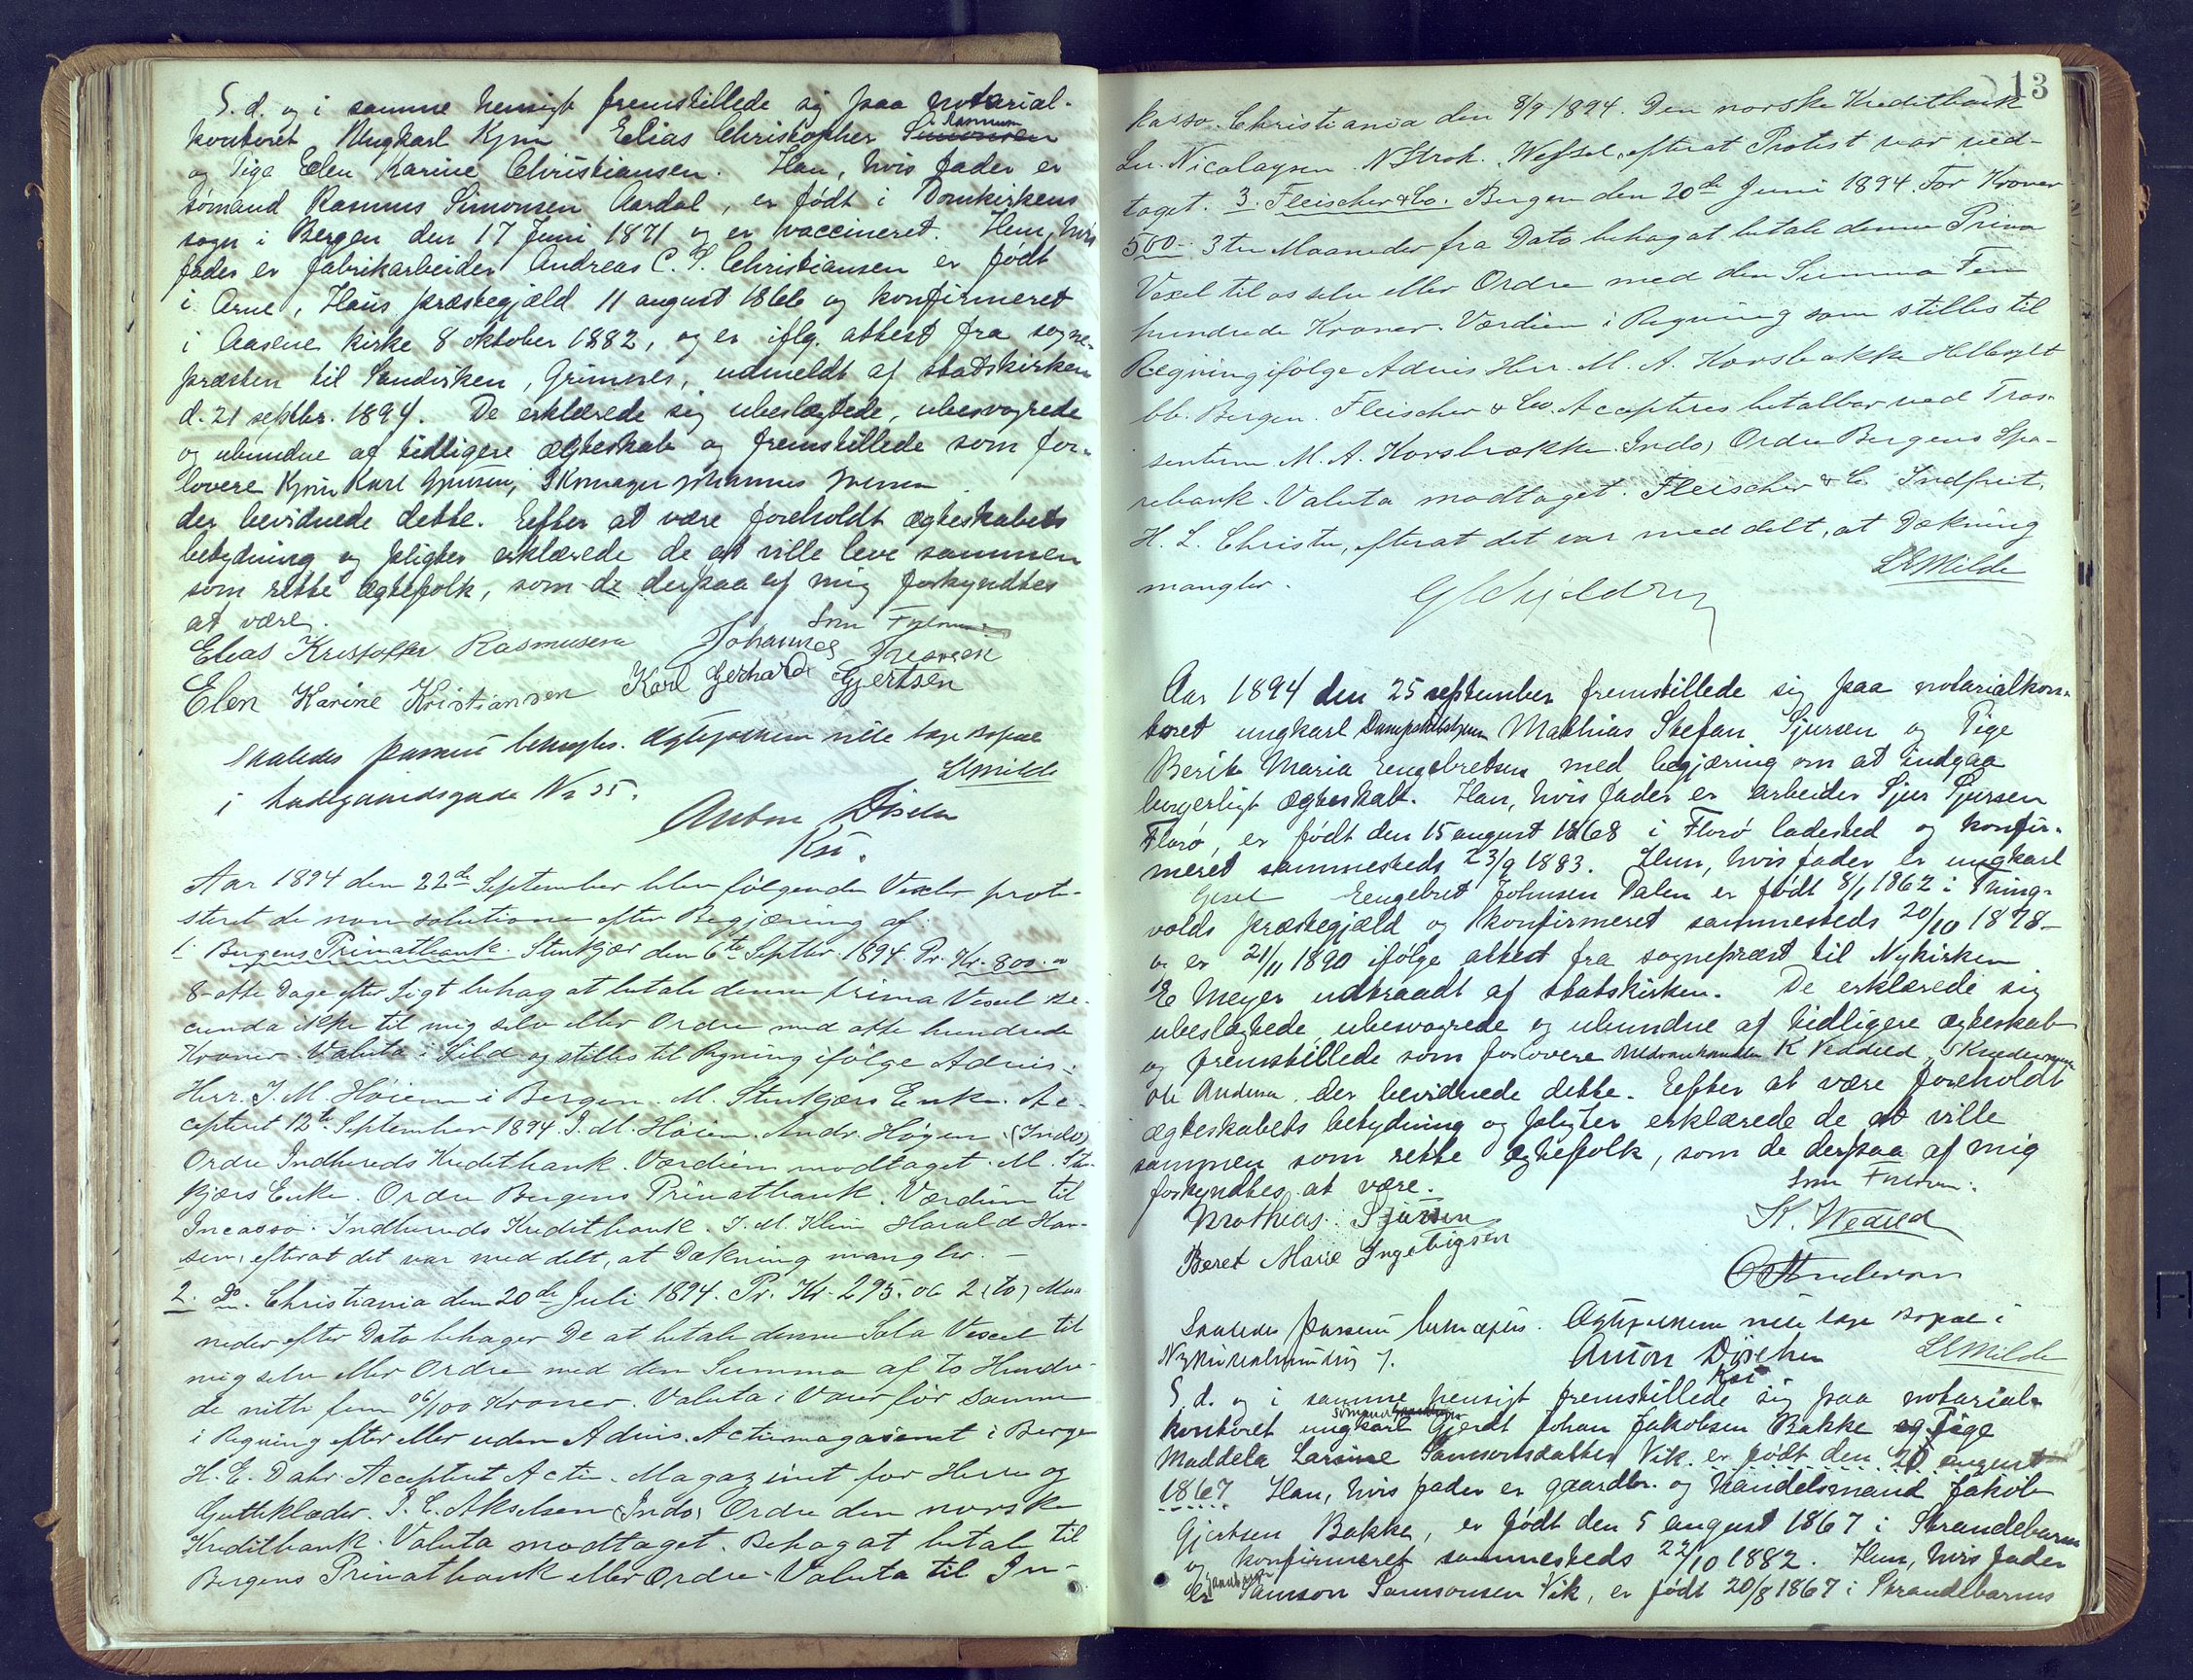 S. d. og i samme hensigt fremstillede sig paa notarial-
kontoret Ungkarl Kjm Elias Christopher Rasmussen Simonsen
og Pige Elen Karine Christiansen. Han, hvis fader er
sømand Rasmus Simonsen Aardal, er født i Domkirkens
sogn i Bergen den 17 Juni 1871 og er vaccineret. Hun, hvis
fader er fabrikarbeider Andreas C. P. Christiansen er født
i Arne, Haus præstegjæld 11 august 1866 og konfirmeret
i Aasene kirke 8 oktober 1882, og er iflg. attest fra sogne-
præsten til Sandviken, Grimnes, udmeldt af statskirken
d. 21 septbr. 1894. De erklærede sig ubeslægtede, ubesvogrede
og ubundne af tidligere ægteskab og fremstillede som for-
lovere Kjm Karl Gjertsen, Skomager Johannes Iversen
der bevidnede dette. Efter at være foreholdt ægteskabets
betydning og pligter erklærede de at ville leve sammen
som rette ægtefolk, som de derpaa af mig forkyndtes
at være.
Som Forlovere:
Elias Kristoffer Rasmusen Johannes Iversen
Elen Karine Kristiansen Karl Gerhard Gjertsen
Saaledes passeret bekræftes. Ægtefolkene ville tage bopæl
i Ladegaardsgade No 55. LMilde
Anton Dischen
Kst.
Aar 1894 den 22de September blev følgende Vexler prote-
steret de non solutione efter Begjæring af:
1. Bergens Privatbank. Stenkjær den 6te Septbr. 1894. Pr. Kr. 800.
8-otte Dage efter Sigt behag at betale denne prima Vexel se-
cunda ikke til mig selv eller Ordre med otte hundrede
Kroner. Valuta i Sild og stilles til Regning ifølge Advis.
Herr. J. M. Høiem i Bergen. M. Stenkjærs Enke. Ac-
cepteret 12te September 1894. J. M. Høiem. Andr. Høgen. (Indo)
Ordre Indhereds Kreditbank. Værdien modtaget. M. Sten-
kjærs Enke. Ordre Bergens Privatbank. Værdien til
Incasso. Indhereds Kreditbank. J. M. Klem Harald Han-
sen, efterat det var meddelt, at Dækning mangler. —
2. Do. Christiania den 20de Juli 1894. Pr. Kr. 295.06 2 (to) Maa
neder efter Dato behager De at betale denne Sola Vexel til
mig selv eller Ordre med den Summa af to Hundre-
de nitti fem 06/100 Kroner. Valuta i Varer før samme
i Regning efter eller uden Advis. Actiemagasinet i Bergen
H. E. Dahr. Accepteret Actie-Magazinet for Herre og
Gutteklæder. P. C. Akselsen (Indo) Ordre den norske
Kreditbank. Valuta modtaget. Behag at betale til
Bergens Privatbank eller Ordre. Valuta til In-
13
kasso. Christiania den 8/9 1894. Den norske Kreditbank
Lu. Nicolaysen. N Strøh. Wefsel, efterat Protest var ned-
taget. 3. Fleischer & Co. Bergen den 20de Juni 1894. For Kroner
500.- 3 tre Maaneder fra Dato behag at betale denne Prima
Vexel til os selv eller Ordre med den Summa Fem
hundrede Kroner. Værdien i Regning som stilles til
Regning ifølge Advis Herr. M. A. Korsbrekke
Bergen. Fleischer & Co. Accepteres betalbar ved Tras-
senterne M. A. Korsbrække. (Indo) Ordre Bergens Spa-
rebank. Valuta modtaget. Fleischer & C. Indfriet.
H. L. Christie, efterat det var meddelt, at Dækning
mangler. LMilde
Aar 1894 den 25 september fremstillede sig paa notarialkon-
toret ungkarl Mathias Stefan Sjursen og Pige
Berit Maria Engebretsen med begjæring om at indgaa
borgerligt ægteskab. Han, hvis fader er arbeider Sjur Sjursen
Florø, er født den 15 august 1868 i Florø ladested og konfir-
meret sammesteds 23/9 1883. Hun, hvis fader er ungkarl
Gesel Eengebret Johnsen Dalen er født 8/1 1862 i Thing-
volds præstegjæld og konfirmeret sammesteds 20/10 1878—
og er 21/11 1890 ifølge attest fra sognepræst til Nykirken
E Meyer udtraadt af statskirken. De erklærede sig
ubeslægtede, ubesvogrede og ubundne af tidligere ægteskab
og fremstillede som forlovere K Veddeld, Skræder
Ole Andersen. der bevidnede dette. Efter at være foreholdt
ægteskabets betydning og pligter erklærede de at ville
sammen som rette ægtefolk, som de derpaa af mig
forkyndtes at være. Som Forlovere:
Mathias Sjursen K. Wedeld
Beret Marie Ingebrigsen
O Andersen
Saaledes passeret bekræftes. Ægtefolkene ville tage bopæl i
Nykirkealmending 7. Anton Dischen LMilde
Kst
S. d. og i samme hensigt fremstillede sig paa notarial-
kontoret ungkarl sømand Gjerdt Johan Jakobsen Bakke og Pige
Maddela Larsine Samsonsdatter Vik. er født den 20 august
1867 Han, hvis fader er gaardbr. og handelsmand Jakob
Gjertsen Bakke, er født den 5 august 1867 i Strandebarm
og konfirmeret sammesteds 22/10 1882. Hun, hvis fader
er Samson Samsonsen Vik, er født 20/8 1867 i Strandebarms